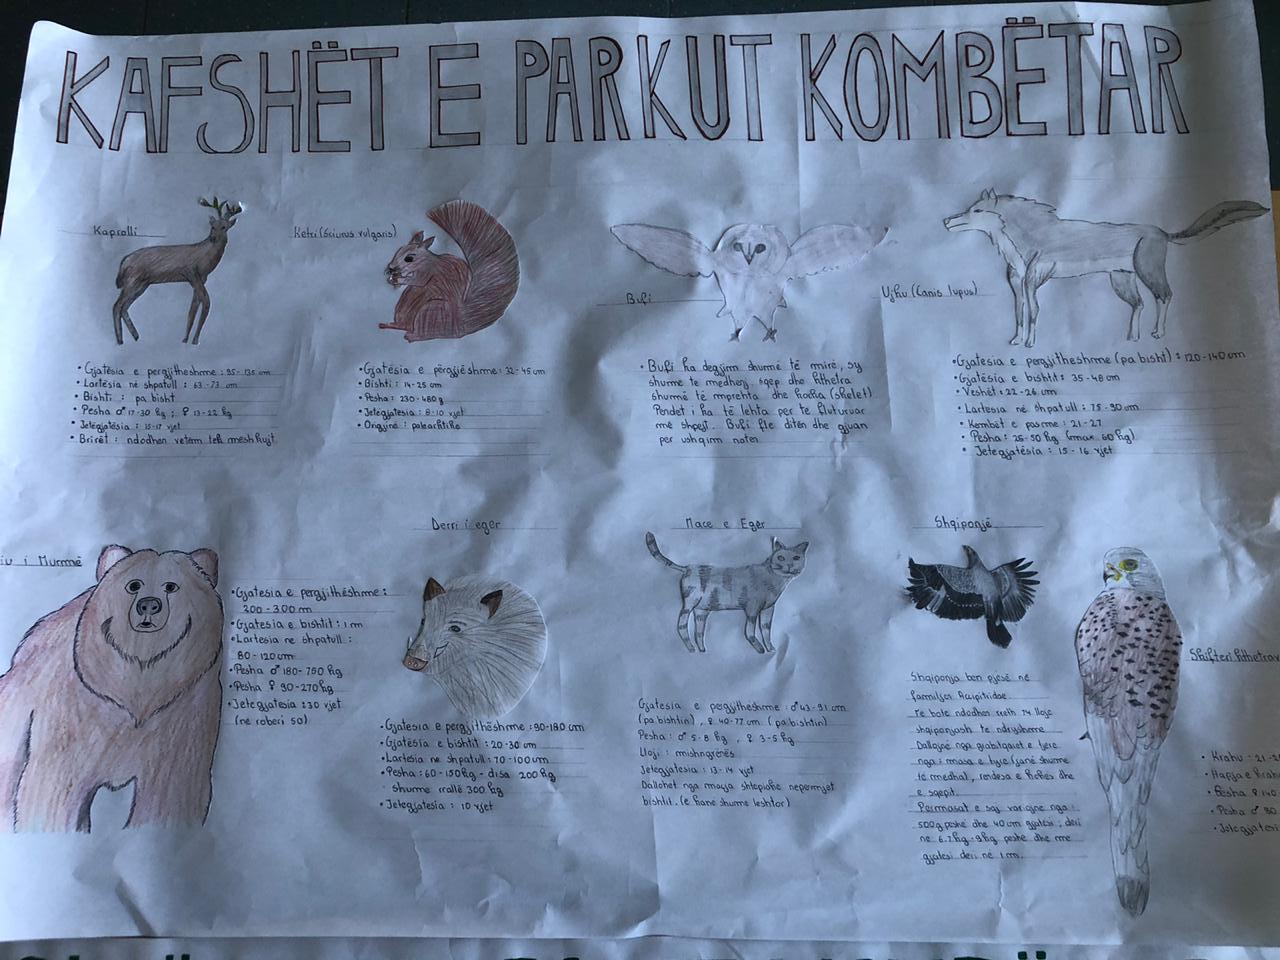 KAFSHËT E PARKUT KOMBËTAR
Kaprolli
• Gjatësia e pergjitheshme : 95-135 cm
• Lartësia në shpatull : 63-73 cm
• Bishti : pa bisht
• Pesha ♂ 17-30 kg ; ♀ 13-22 kg
• Jetëgjatësia : 15-17 vjet
• Brirët : ndodhen vetem tek meshkujt
Ketri (Sciurus vulgaris)
• Gjatësia e përgjiëshrme : 32-45 cm
• Bishti : 14-25 cm
• Pesha : 230-480 g
• Jetegjatësia : 8-10 vjet
• Origjine : palearktike
Bufi
• Bufi ka degjim shumë të mirë, sy
shurme te medhenj, sqep dhe kthetra
shumë të mprehta dhe kocka (skelet)
Pendet i ka të lehta per te fluturuar
më shpejt. Bufi fle ditën dhe gjuan
per ushqim naten
Ujku (Canis lupus)
• Gjatesia e pergjitheshme (pa bisht) : 120-140 cm
• Gjatësia e bishtit : 35-48 cm
• Veshët : 22-26 cm
• Lartësia në shpatull : 75-90 cm
• Kembët e pasme : 21-27
• Pesha : 25-50 kg (max 60 kg)
• Jetegjatësia : 15-16 vjet
iu i Murrmë
• Gjatesia e pergjithëshme :
200-300 m
• Gjatesia e bishtit : 1 m
• Lartesia ne shpatull :
80-120 cm
• Pesha ♂ 180-750 kg
• Pesha ♀ 90-270 kg
• Jetegjatesia : 30 vjet
(ne roberi 50)
Derri i eger
• Gjatesia e pergjithëshme : 90-180 cm
• Gjatësia e bishtit : 20-30 cm
• Lartësia ne shpatull : 70-100 cm
• Pesha : 60-150 kg - disa 200 kg
shurme rrallë 300 kg
• Jetegjatesia : 10 vjet
Mace e Eger
Gjatesia e pergjitheshme : ♂ 43-91 cm
(pa bishtin) , ♀ 40-77 cm (pa bishtin)
Pesha : ♂ 5-8 kg , ♀ 3-5 kg
Lloji : mishngrënës
Jetegjatesia : 13-14 vjet
Dallohet nga macja shtepiake nepermjet
bishtit. (e kane shume leshtor)
Shqiponjë
Shqiponja ben pjesë në
familjen Accipitridae
Te bote ndodhen rreth 74 lloje
shqiponjash te ndryshme
Dallojnë nga grabitqaret e tjere
nga : masa e tyre (janë shume
të medha), rendesa e kokes dhe
e sqepit.
Permasat e saj variojne nga :
500g peshë dhe 40 cm gjatësi, deri
ne 6.7 kg-9 kg peshë dhe me
gjatesi deri në 1 m.
Skifteri kthetrav
• Krahu : 21-2
• Hapja e krah
• Pesha ♀ 140
• Pesha ♂ 90
• Jetegjatesi